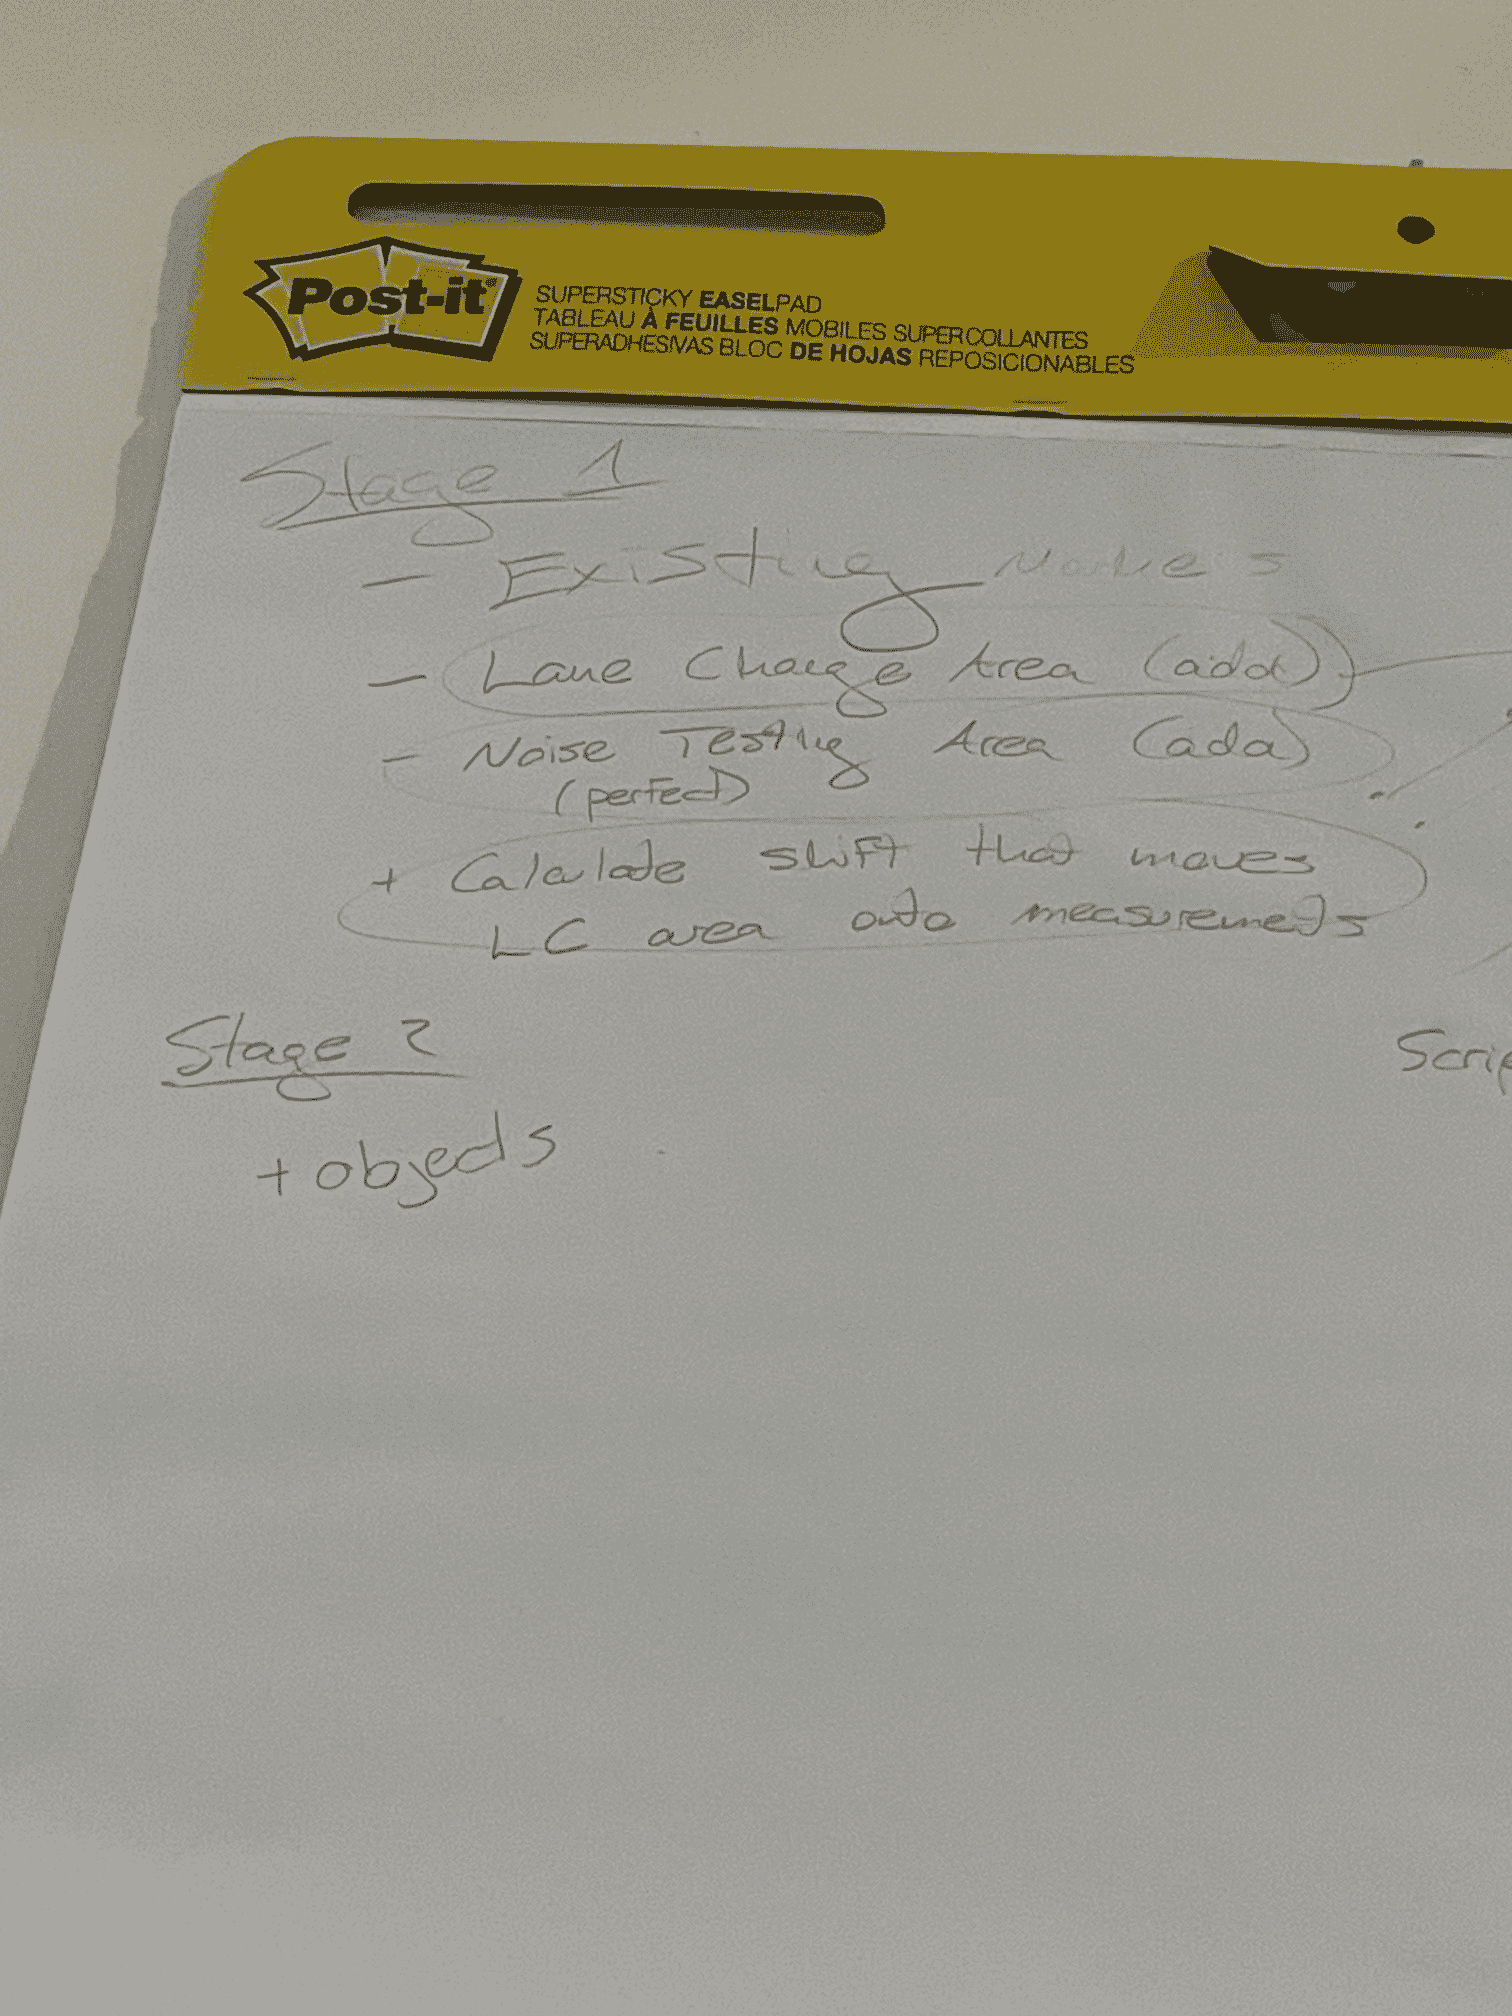 Post-it
SUPERSTICKY EASELPAD
TABLEAU À FEUILLES MOBILES SUPERCOLLANTES
SUPERADHESIVAS BLOC DE HOJAS REPOSICIONABLES
Stage 1
- Existing
- Lane Change Area (add)
- Noise Testing Area (add)
(perfect)
+ Calculate shift that moves
LC area onto measurements
Stage 2
+ objects